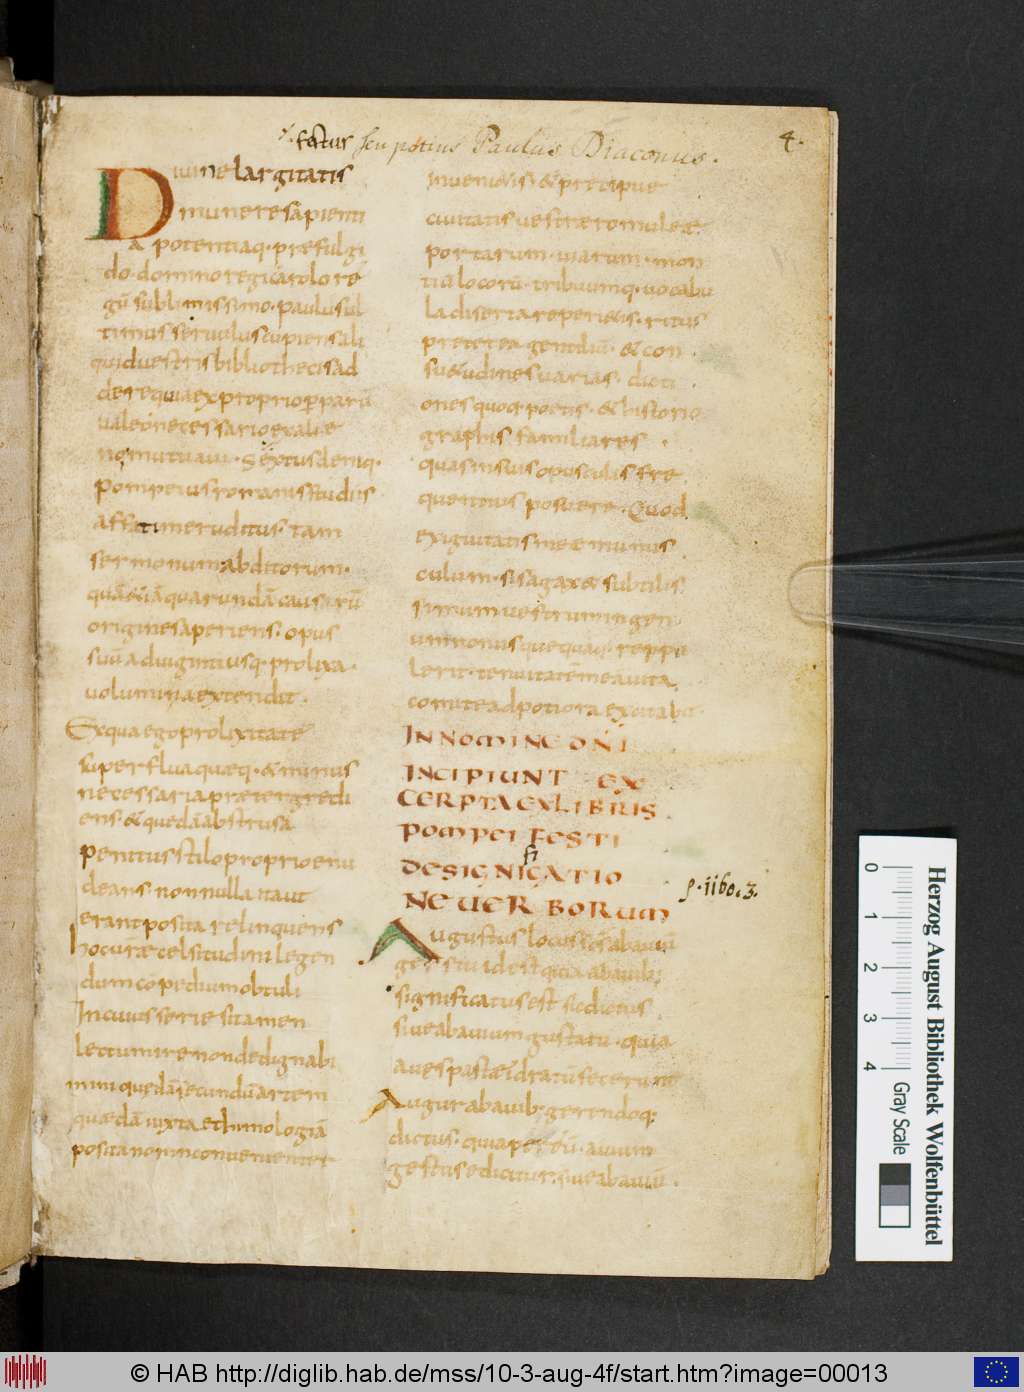 festus seu potius Paulus Diaconus.
4.
Diuine largitatis
munere sapienti
a potentiaq· prefulgi
do· domino regi carolo re
gū sublimissimo· paulus ul
timus seruulus cupiens ali
quid uestris bibliothecis ad
dere quia ex proprio pparū
ualeo necessario ex alie
no mutuaui· Sextus deniq·
pompeius romanis studiis
affatim eruditus· tam
sermonum abditorum·
quā & iā quarundā causarū
origines aperiens· opus
suū ad uiginti usq· prolixa·
uolumina extendit·
Ex qua ego prolixitate
superflua quæq· & minus
necessaria prætergredi
ens· & quedā abstrusa
penitus stilo proprio enu
cleans· nonnulla ita ut
erant posita relinquens
hoc uræ celsitudini legen
dum copedium obtuli
In cuius serie si tamen
lectum ire non dedignabi
mini quedā secundū artem
quædā iuxta ethimologiā
posita non inconuenienter
inuenietis· & precipue
ciuitatis uestræ romuleæ·
portarum· uiarum· mon
tiū locorū· tribuumq· uocabu
la diserta reperietis· ritus
preterea gentiliū· & con
suetudines uarias· dicti
ones quoq poetis· & historio
graphis familiares·
quas in suis opusculis fre
quentius posuere· Quod
exiguitatis meæ munus
culum· si sagax & subtilis
simum uestrum ingen
um non usquequaq· reppu
lerit· tenuitatē meā uita
comite ad potiora excitabit·
IN NOMINE DNI
INCIPIUNT EX
CERPTA EX LIBRIS
POMPEI FESTI
DE SIGNICATIO
fi
NE UERBORUM
p·1160.3.
Augustus locus scs ab auiū
gestu id est quia ab auib;
significatus est sic dictus
siue ab auium gustatu· quia
aues pastæ id ratū fecerunt
Augur ab auib; gerendoq;
dictus· quia per eū· auium
gestus edicitur· siue ab auiū·
Herzog August Bibliothek Wolfenbüttel
0 1 2 3 4
Gray Scale
© HAB http://diglib.hab.de/mss/10-3-aug-4f/start.htm?image=00013